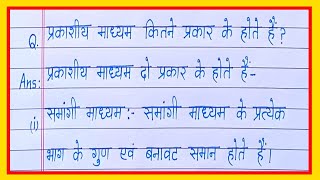 Q. प्रकाशीय माध्यम कितने प्रकार के होते हैं?
Ans: प्रकाशीय माध्यम दो प्रकार के होते हैं-
(i) समांगी माध्यम :- समांगी माध्यम के प्रत्येक
भाग के गुण एवं बनावट समान होते हैं।